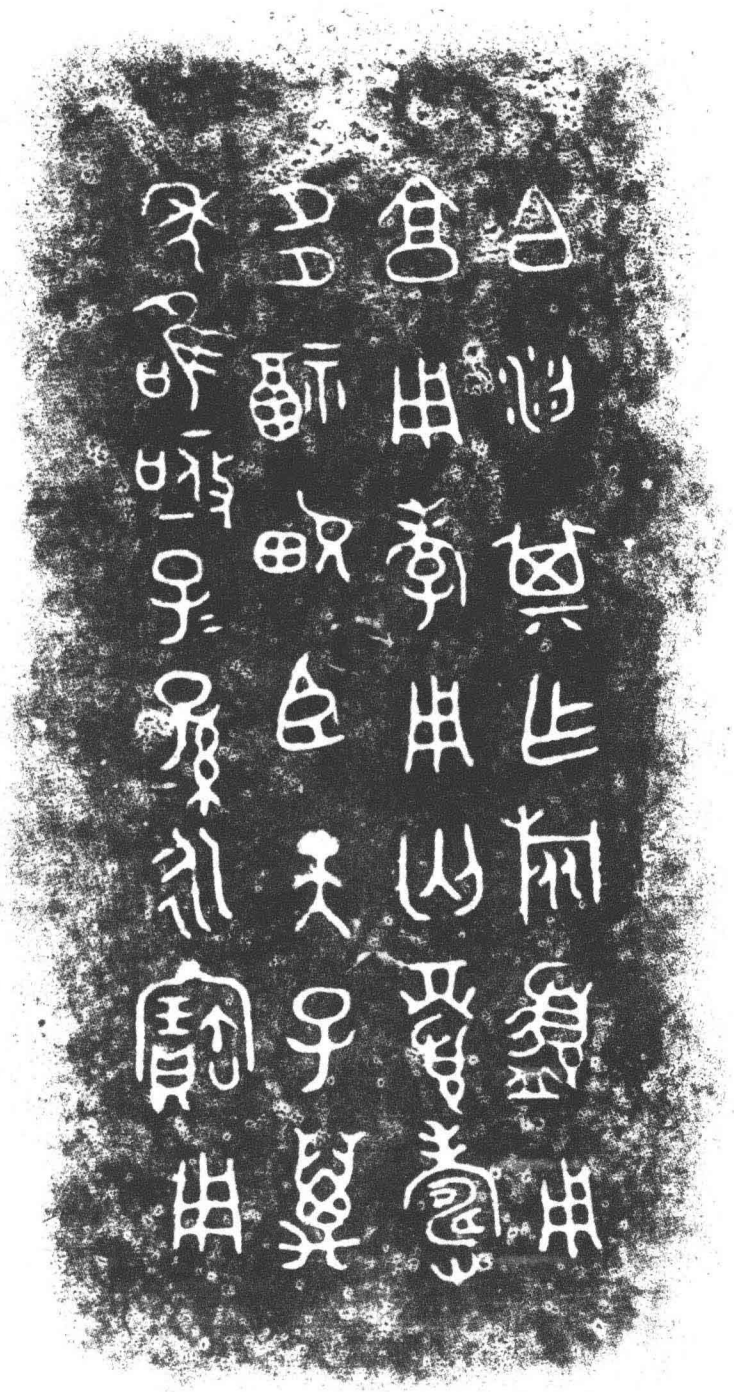 白梁其乍旅盨用
享用孝用匃眉壽
多福畯臣天子萬
年唯亟子=孫=永寶用